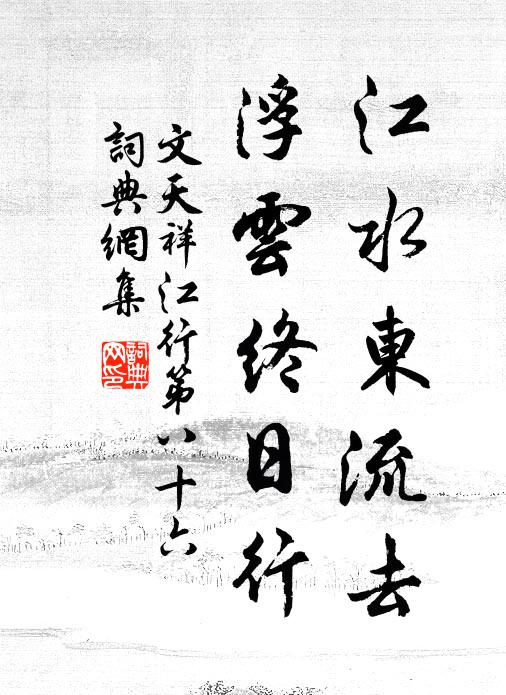 江水東流去
浮雲終日行
文天祥江行第八十六
詞典網集
詞典網印